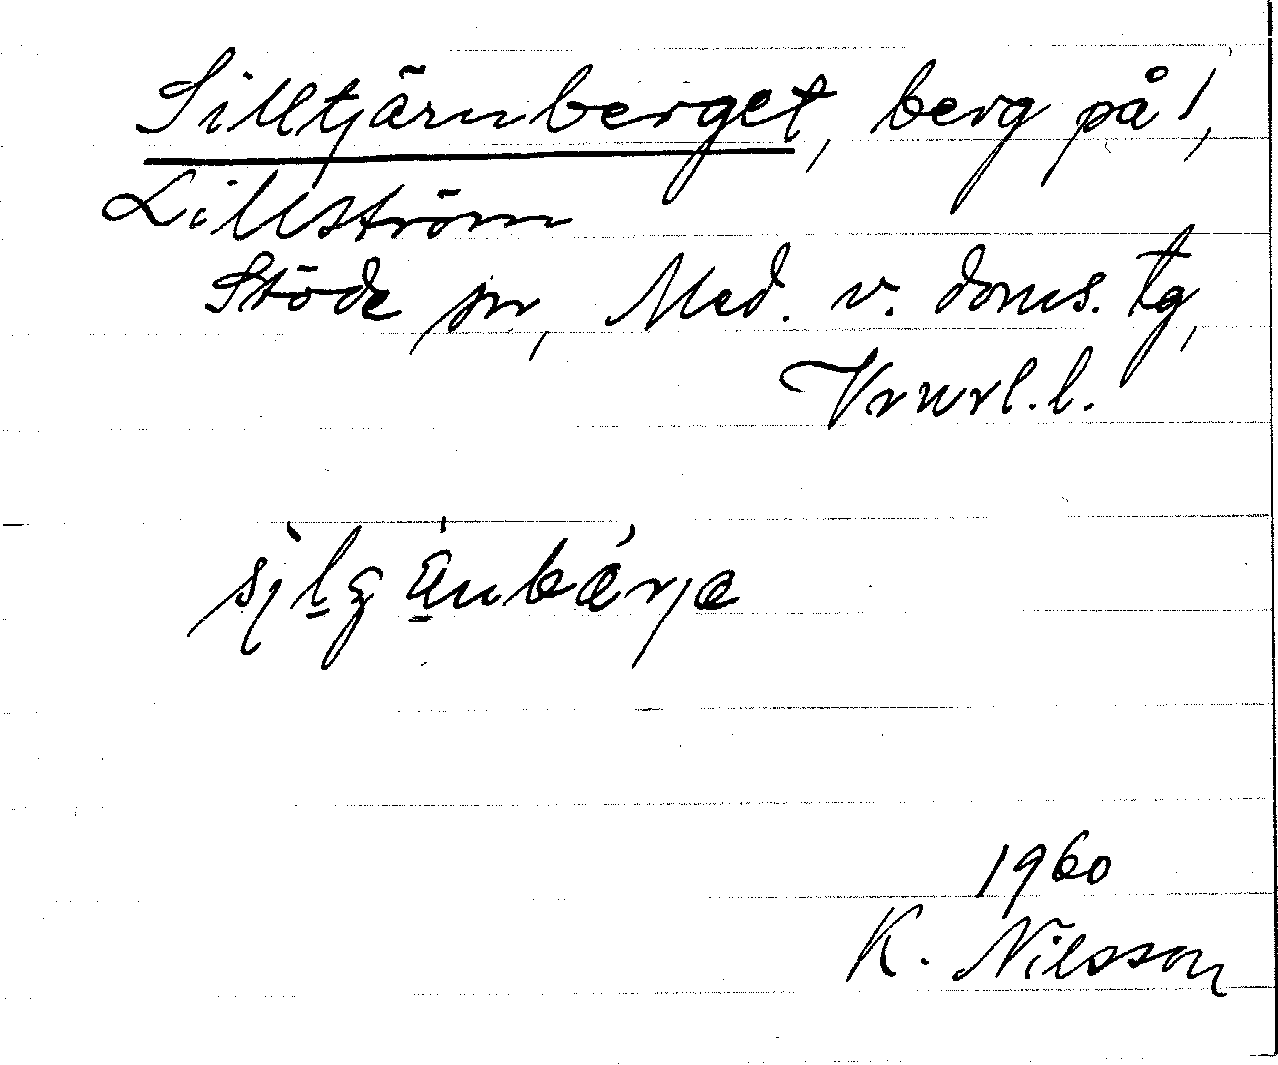 Silltjärnberget, berg på 1,
Lillström
Stöde sn, Med. v. doms. tg,
Vrnrl. l.
1960
K. Nilsson